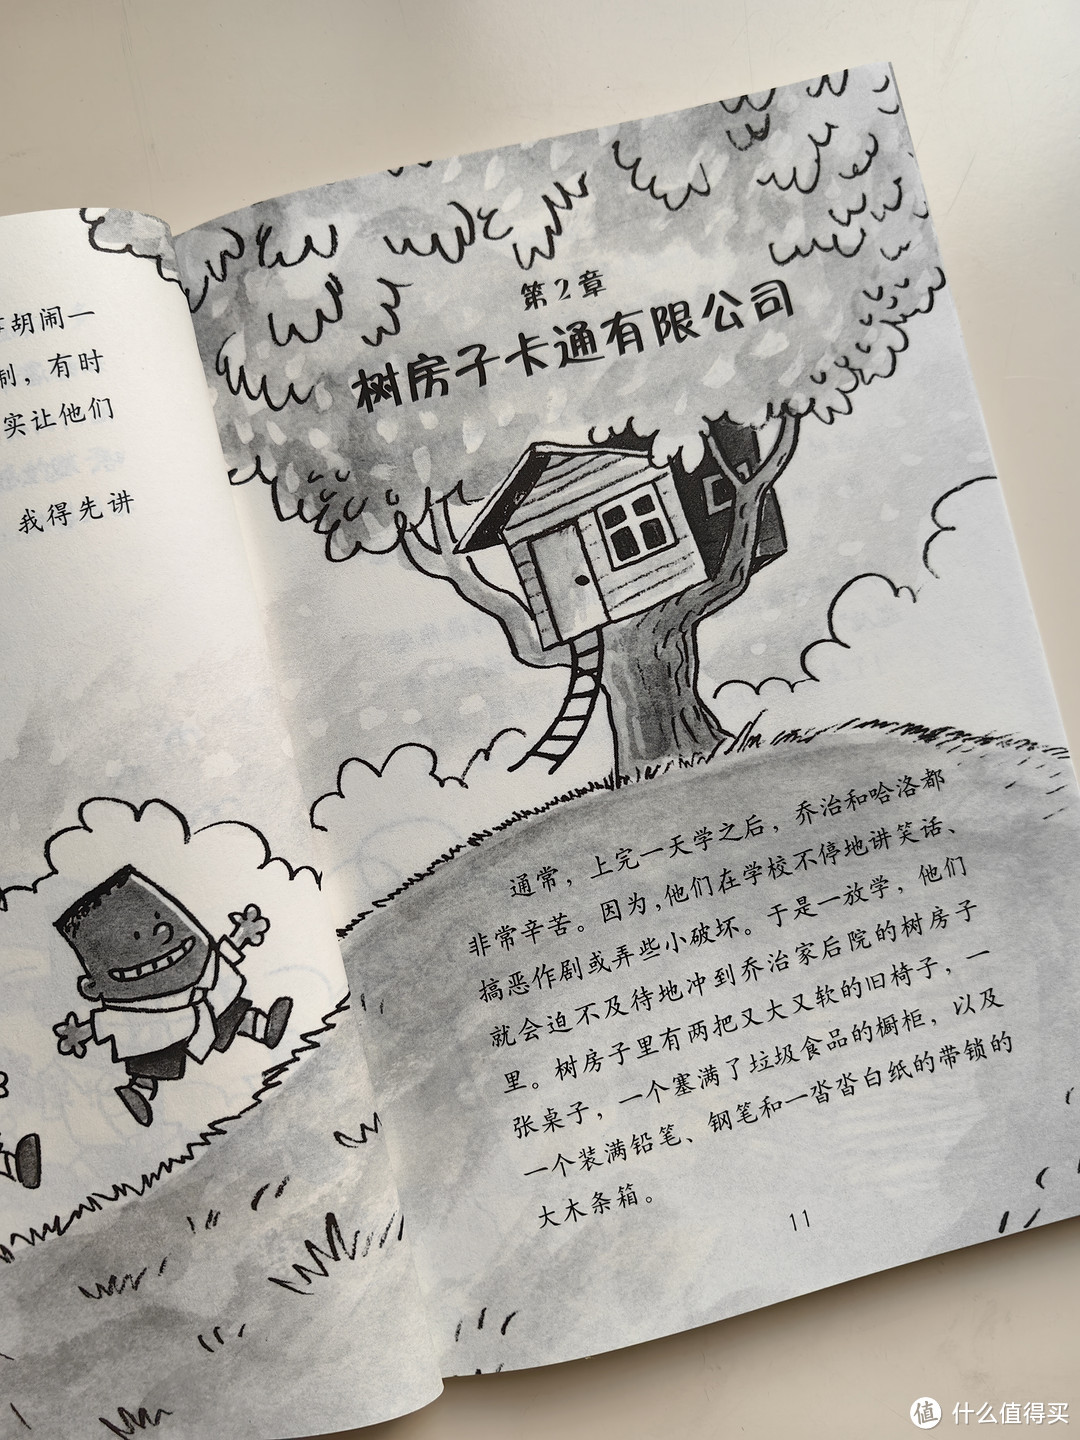 胡闹一
制，有时
实让他们
我得先讲
第2章
树房子卡通有限公司
通常，上完一天学之后，乔治和哈洛都
非常辛苦。因为，他们在学校不停地讲笑话、
搞恶作剧或弄些小破坏。于是一放学，他们
就会迫不及待地冲到乔治家后院的树房子
里。树房子里有两把又大又软的旧椅子，一
张桌子，一个塞满了垃圾食品的橱柜，以及
一个装满铅笔、钢笔和一沓沓白纸的带锁的
大木条箱。
11
值 什么值得买